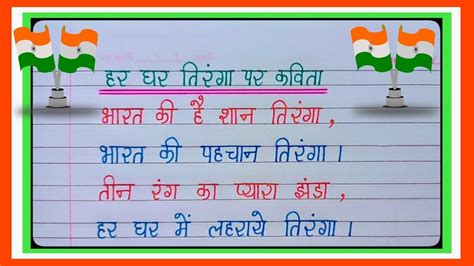 हर घर तिरंगा पर कविता
भारत की है शान तिरंगा,
भारत की पहचान तिरंगा।
तीन रंग का प्यारा झंडा,
हर घर में लहराये तिरंगा।